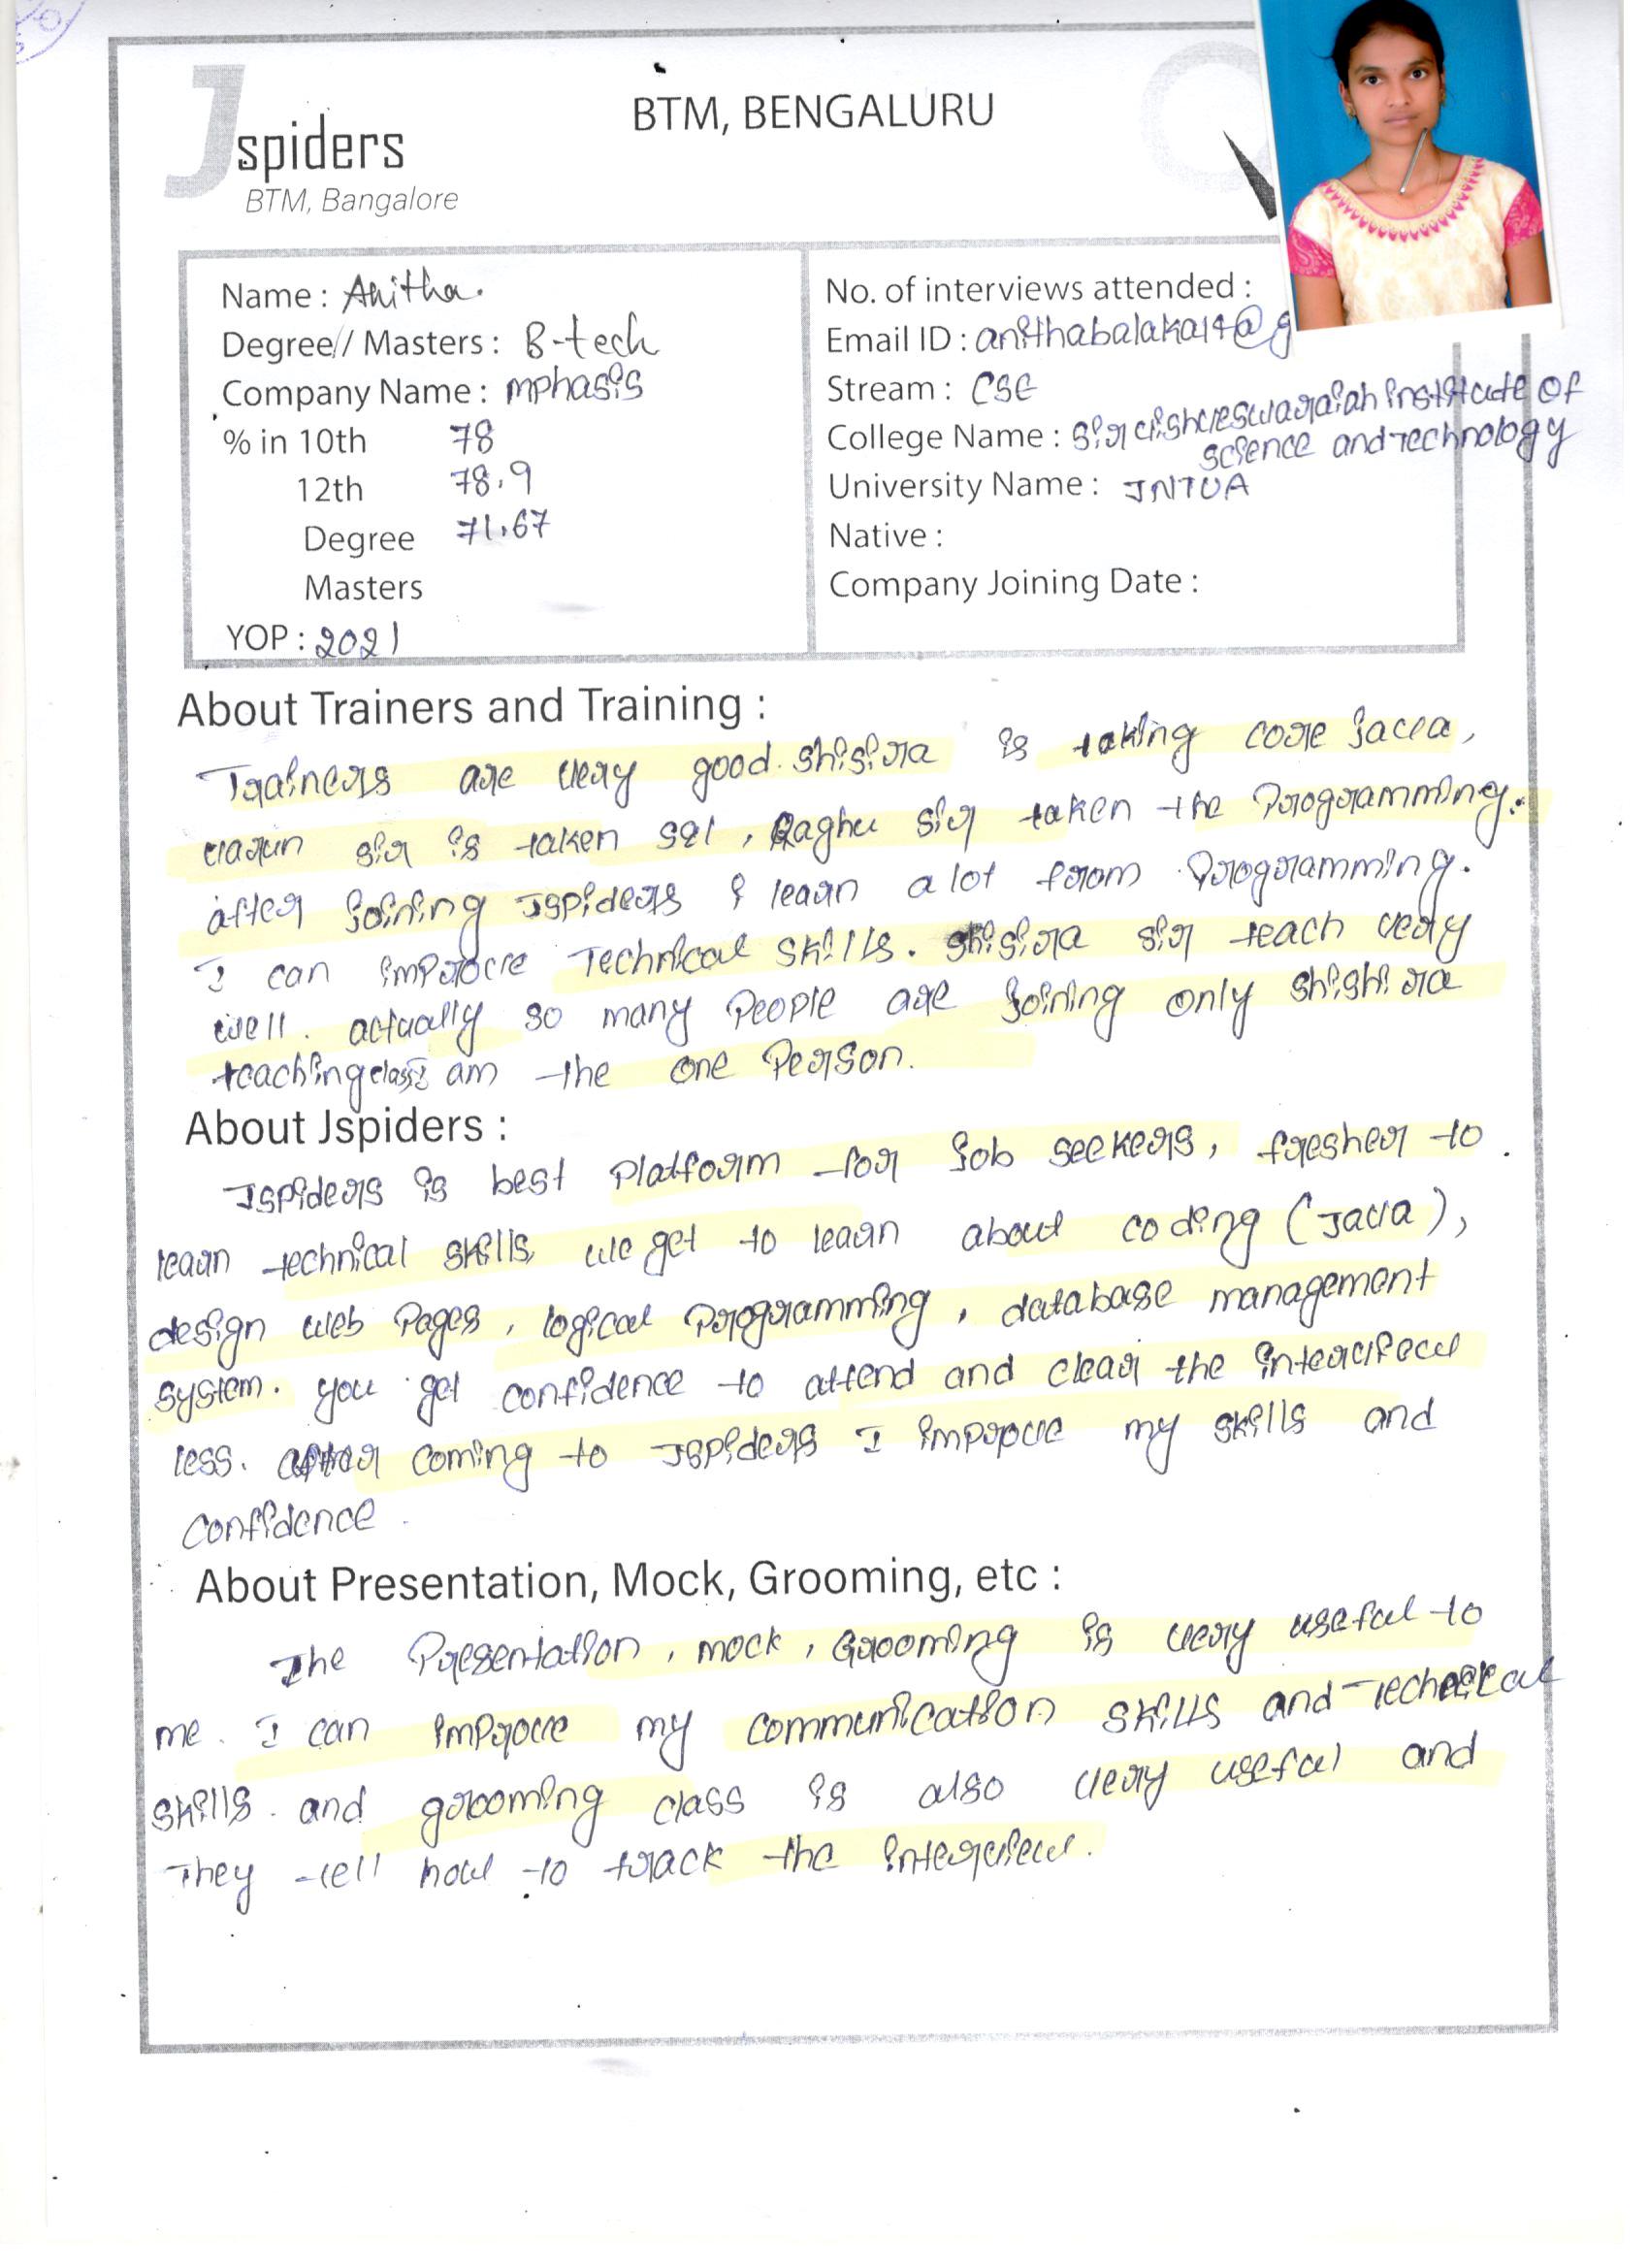 Jspiders
BTM, Bangalore
BTM, BENGALURU
Name : Anitha.
Degree// Masters : B-tech
Company Name : mphasis
% in 10th 78
12th 78.9
Degree 71.67
Masters
YOP : 2021
No. of interviews attended :
Email ID : anithabalaka14@g
Stream : CSE
College Name : Sir vishveswaraiah institute of
science and Technology
University Name : JNTUA
Native :
Company Joining Date :
About Trainers and Training :
Trainers are very good. shisira is taking core java,
varun sir is taken sql, Raghu sir taken the Programming.
after joining Jspiders i learn a lot from Programming.
I can improve Technical skills. shisira sir teach very
well. actually so many People are joining only shishira
teaching class I am the one Person.
About Jspiders :
Jspiders is best Platform for job seekers, fresher to
learn technical skills, we get to learn about coding (Java),
design web Pages, logical Programming, database management
system. you get confidence to attend and clear the interview
less. after coming to Jspiders I improve my skills and
confidence
About Presentation, Mock, Grooming, etc :
The Presentation, mock, Grooming is very useful to
me. I can improve my communication skills and Technical
skills. and grooming class is also very useful and
They tell how to track the interview.